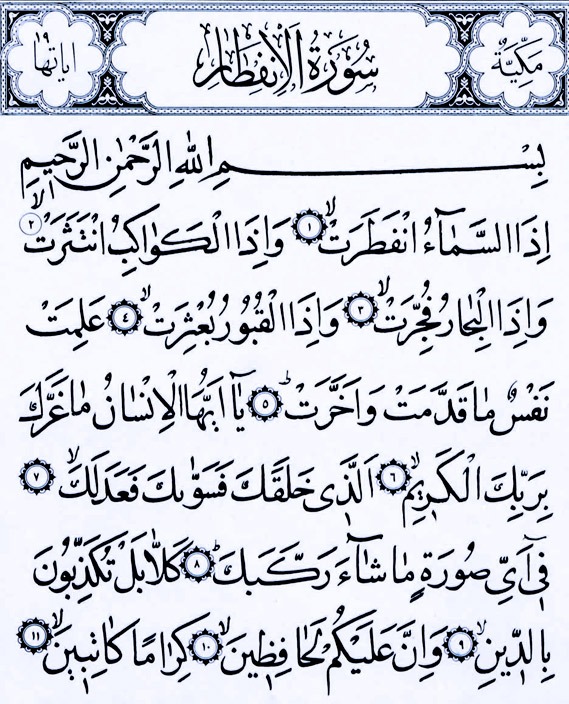 مَكِّيَّةٌ سُورَةُ الْاِنْفِطَارِ اٰيَاتُهَا ١٩
بِسْمِ اللّٰهِ الرَّحْمٰنِ الرَّحِيمِ
اِذَا السَّمَٓاءُ انْفَطَرَتْۙ ﴿١﴾ وَاِذَا الْكَوَاكِبُ انْتَثَرَتْۙ ﴿٢﴾
وَاِذَا الْبِحَارُ فُجِّرَتْۙ ﴿٣﴾ وَاِذَا الْقُبُورُ بُعْثِرَتْۙ ﴿٤﴾ عَلِمَتْ
نَفْسٌ مَا قَدَّمَتْ وَاَخَّرَتْۜ ﴿٥﴾ يَٓا اَيُّهَا الْاِنْسَانُ مَا غَرَّكَ
بِرَبِّكَ الْكَرِيمِۙ ﴿٦﴾ اَلَّذ۪ي خَلَقَكَ فَسَوّٰيكَ فَعَدَلَكَۙ ﴿٧﴾
ف۪ٓي اَيِّ صُورَةٍ مَا شَٓاءَ رَكَّبَكَۜ ﴿٨﴾ كَلَّا بَلْ تُكَذِّبُونَ
بِالدّ۪ينِۙ ﴿٩﴾ وَاِنَّ عَلَيْكُمْ لَحَافِظ۪ينَۙ ﴿١٠﴾ كِرَامًا كَاتِب۪ينَۙ ﴿١١﴾